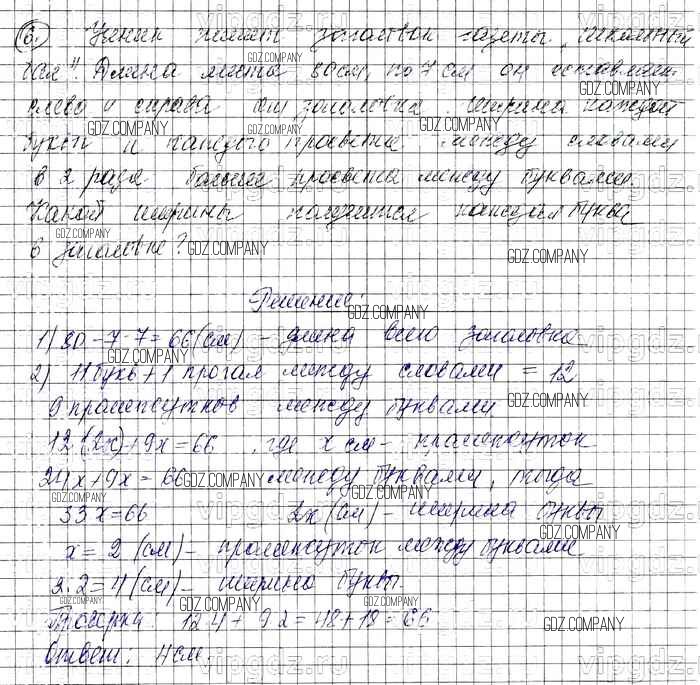 6. Ученик пишет заголовок газеты "Школьный
бал". Длина листа 80 см, по 7 см он оставляет
слева и справа от заголовка. Ширина каждой
буквы и каждого просвета между словами
в 2 раза больше просвета между буквами.
Какой ширины получится каждая буква
в заголовке?
Решение:
1) 80 - 7 - 7 = 66 (см) - длина всего заголовка
2) 11 букв + 1 прогал между словами = 12
9 промежутков между буквами
12(2x) + 9x = 66, где x см - промежуток
24x + 9x = 66 между буквами, тогда
33x = 66 2x (см) - ширина буквы
x = 2 (см) - промежуток между буквами
2·2 = 4 (см) - ширина буквы.
Проверка: 12·4 + 9·2 = 48 + 18 = 66
Ответ: 4 см.